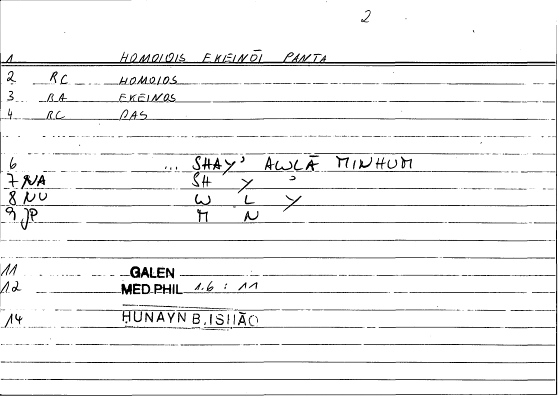 2
1 HOMOIOIS EKEINŌI PANTA
2 RC HOMOIOS
3 RA EKEINOS
4 RC PAS
6 ... SHAY' AWLĀ MINHUM
7 NA SH Y '
8 NU W L Y
9 JP M N
11 GALEN
12 MED PHIL 1.6 : 11
14 HUNAYN B. ISHĀQ